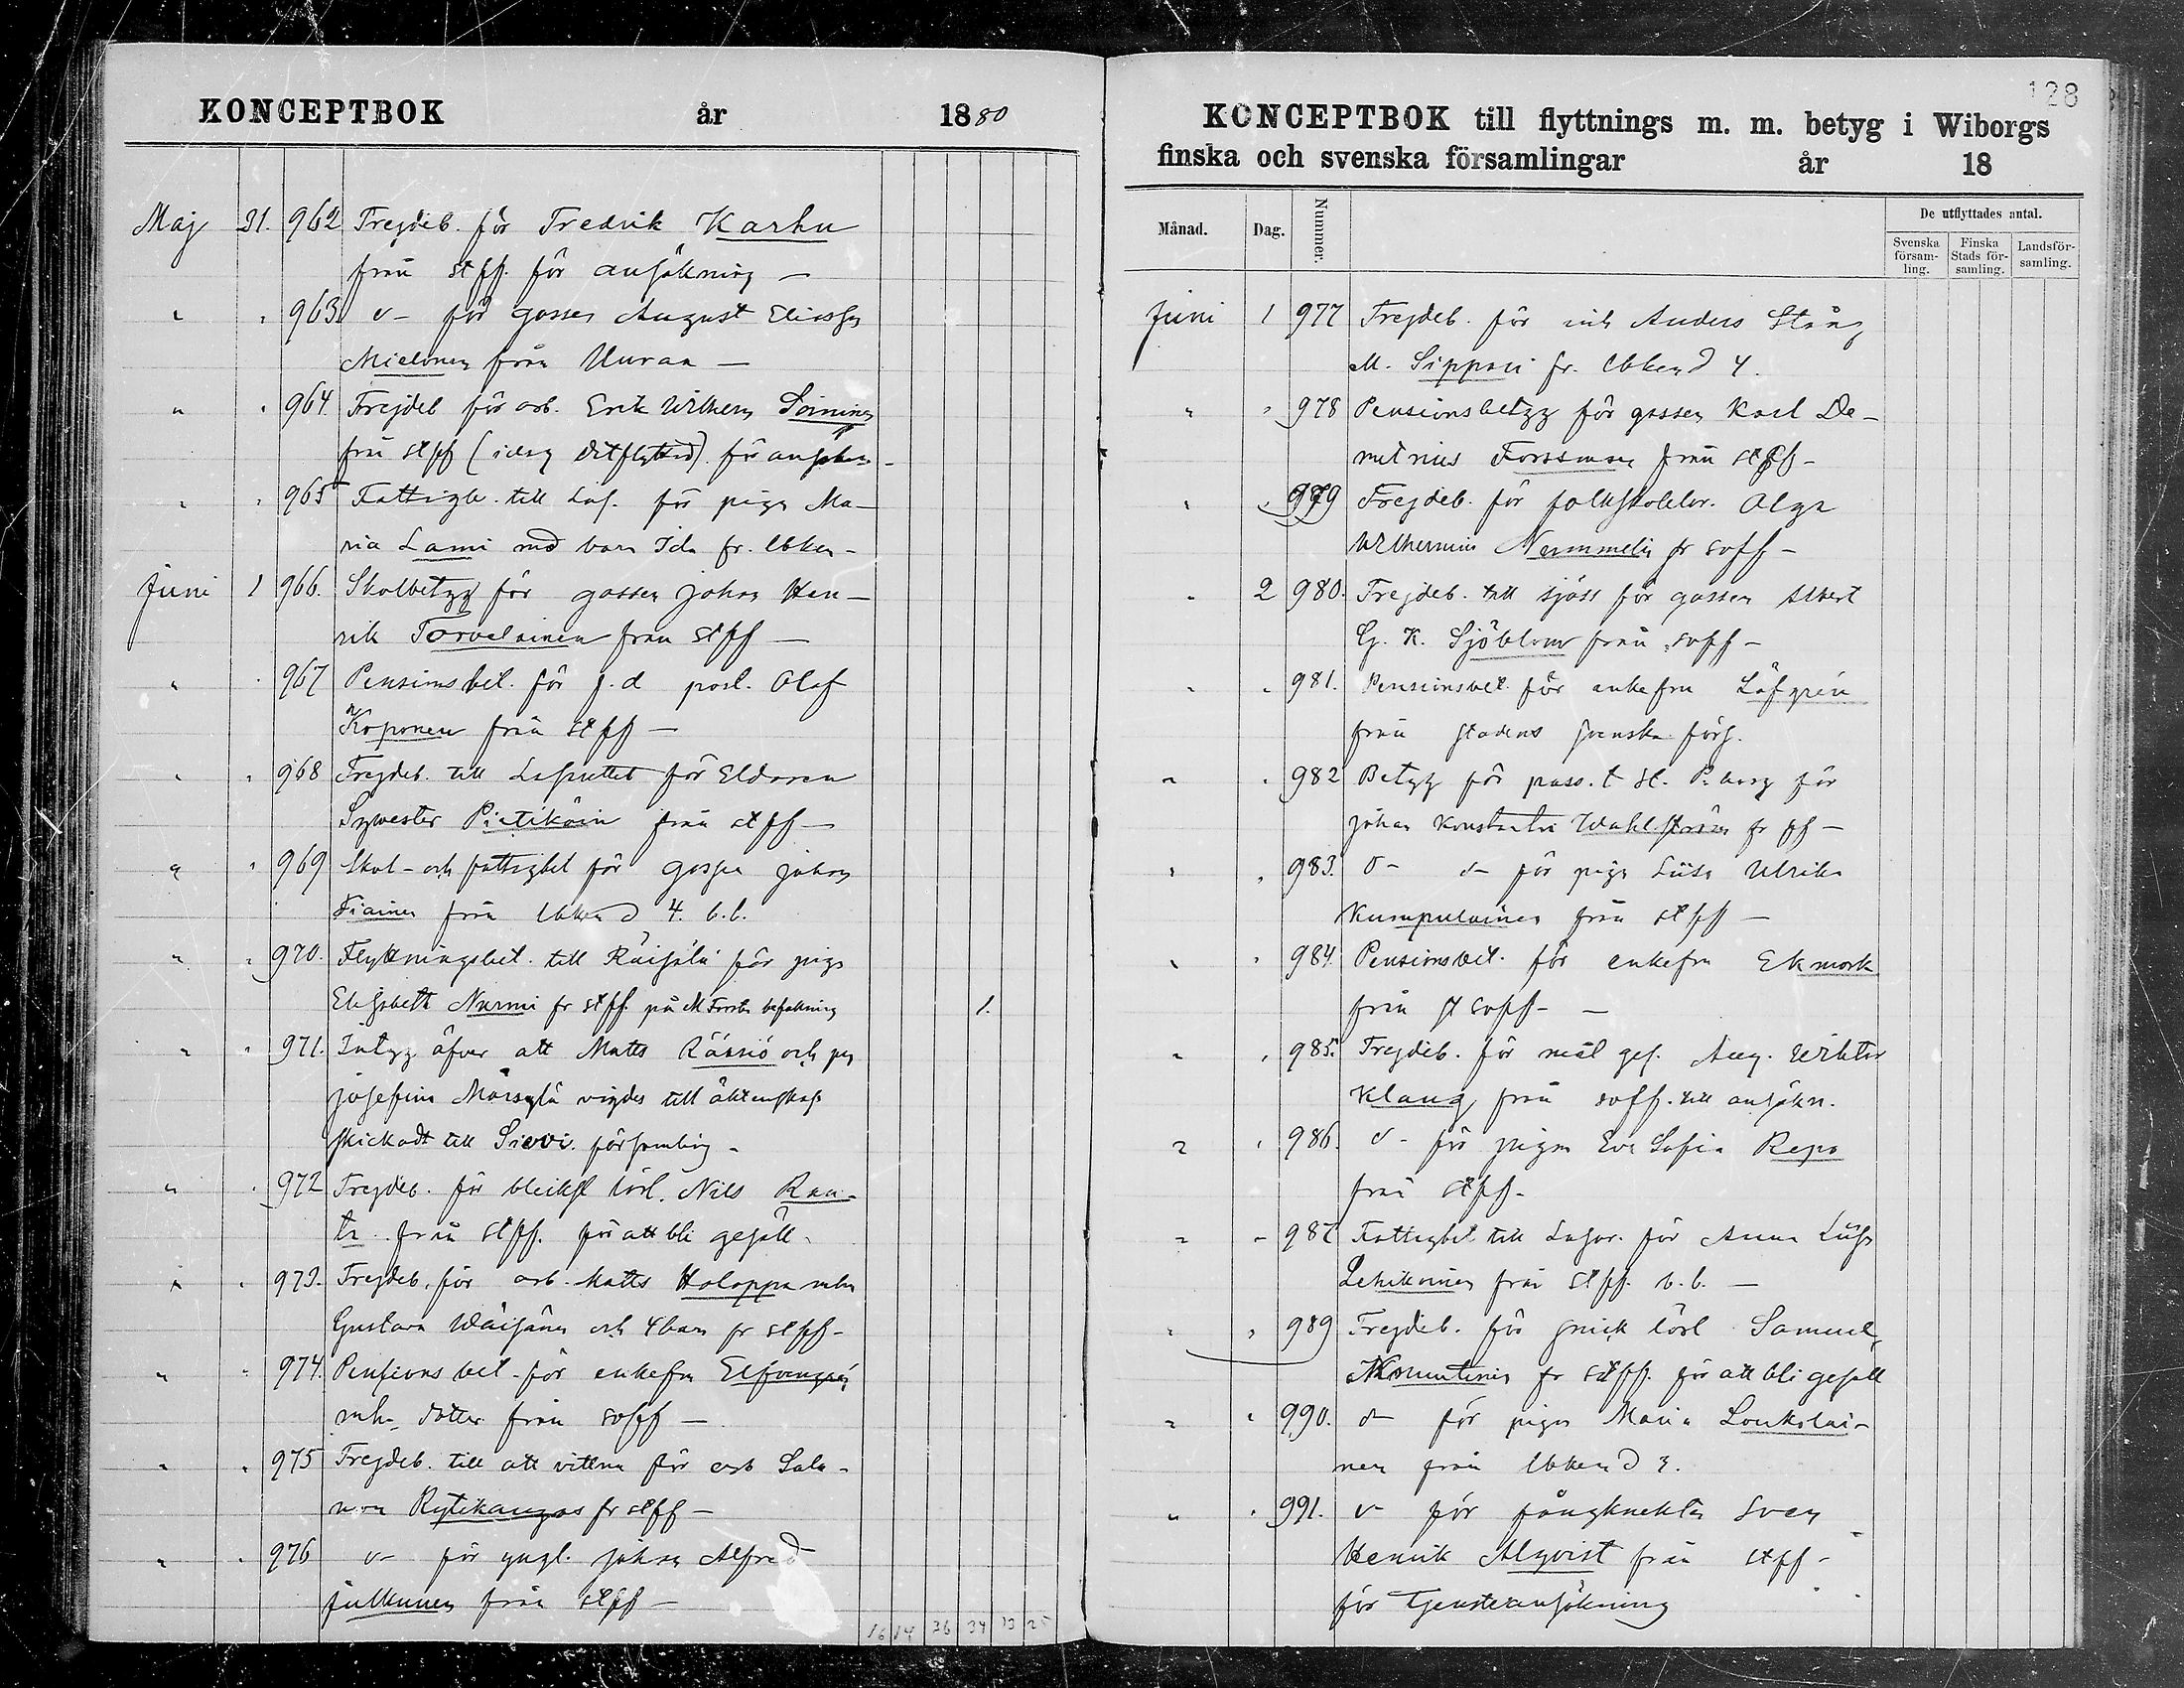 KONCEPTBOK år 1880
Maj 31. 962 Frejdeb. för Fredrik Karhu
från stff. för ansökning —
" " 963. d- för gossen August Eliasson
Mielonen från Uuraa —
" " 964. Frejdeb för arb. Erik Wilhelm Soininen
frå stff (idag ditflyttad) för
" " 965 Fattigb. till Las. för pigan Ma-
ria Lami med barn Ida fr. lbken-
Juni 1 966. Skolbetyg för gossen Johan Hen-
rik Torvelainen från stff —
" " 967 Pensionsbet. för f.d posl. Olof
Koponen från stff —
" " 968 Frejdeb. till Lasarettet för Eldaren
Sylvester Pietikäin från stff —
" " 969 Skol- och fattigbet för gossen Johan
från lbken d 4. b.l.
" " 970. Flyttningsbet. till Räisälä för pigan
Elisabeth Nurmi fr stff. på M Forsbs befallning 1.
" " 971. Intyg öfver att Matts Räsniö och pig
Josefina Marsylä vigdes till äktenskap
skickadt till Sievi församling -
" " 972 Frejdeb. för bleiksl lärl. Nils Ran-
ta från stff. för att bli gesäll -
" " 973. Frejdeb. för arb. Matts Holappa mhu
Gustava Wäisänen och 4 barn fr stff-
" " 974. Pensions bet. för enkefru Elfvengrén
mh dotter från soff —
" " 975 Frejdeb. till att vittna för arb Salo-
mon Rytikangas fr stff —
" " 976 d- för yngl. Johan Alfred
Julkunen från stff —
16 14 36 34 13 25
128
KONCEPTBOK till flyttnings m. m. betyg i Wiborgs
finska och svenska församlingar år 18
Månad. Dag. Nummer. De utflyttades antal.
Svenska försam-ling. Finska Stads för-samling. Landsför-samling.
Juni 1 977 Frejdeb. för inh Anders Stång
M. Sippari fr. lbken d 4.
" " 978 Pensionsbetyg för gossen Karl De-
metrius Forssman från stff-
" " 979 Frejdeb. för folkskolelär. Olga
Wilhelmina Nummelin fr soff -
" 2 980. Frejdeb. till sjöss för gossen Albert
G. K. Sjöblom från soff -
" " 981. Pensionsbet. för enkefru Löfgrén
från stadens svenska förs.
" " 982 Betyg för pass. t St. P. burg för
Johan Konstantin Wahlström fr ff -
" " 983. d- d- för pigan Liisa Ulrika
Kumpulainen från stff -
" " 984. Pensionsbet. för enkefru Ekmark
från st soff- —
" " 985. Frejdeb. för mål. ges. Aug. Wiktor
Klang från soff. till ansökn.
" " 986. d- för pigan Eva Sofia Repo
från stff-
" " 987 Fattigbet till Lasar. för Anna Liisa
Lehikoinen från stff. b.l. —
" " 989 Frejdeb. för snick lärl Samuel
fr stff. för att bli gesäll
" " 990. d- för pigan Maria Loukolai-
nen från lbken d 3.
" " 991. d- för fångknekten Sven
Henrik Alqvist från stff -
för Tjensteansökning